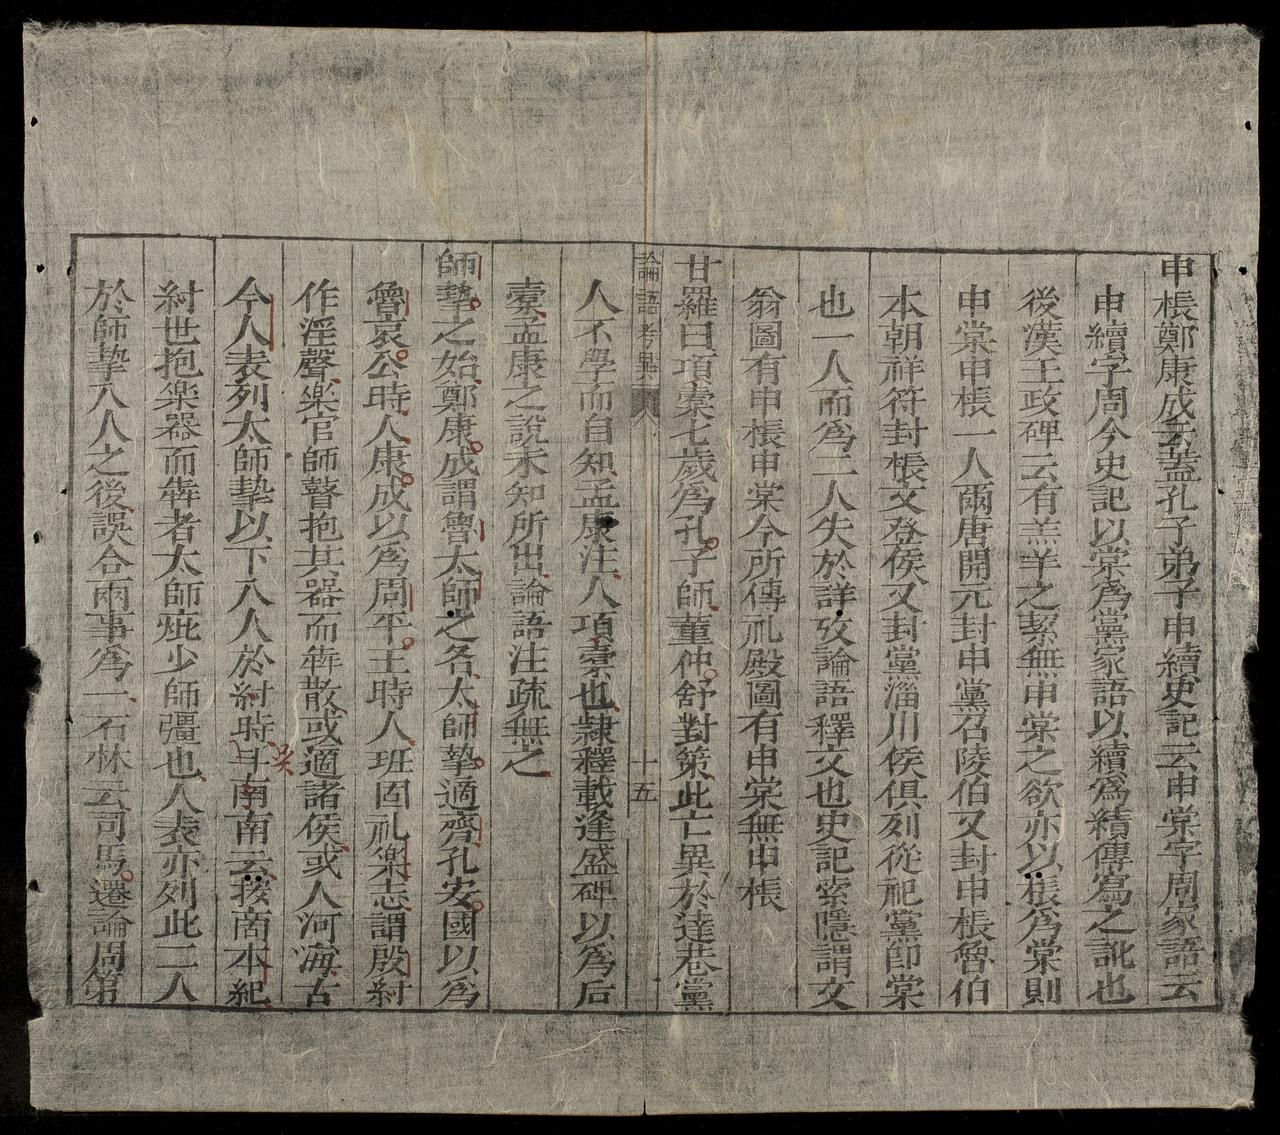 申棖鄭康成云蓋孔子弟子申續史記云申棠字周家語云
申續字周今史記以棠爲黨家語以續爲績傳寫之訛也
後漢王政碑云有羔羊之絜無申棠之欲亦以棖爲棠則
申棠申棖一人爾唐開元封申黨召陵伯又封申棖魯伯
本朝祥符封棖文登侯又封黨淄川侯俱列從祀黨即棠
也一人而爲二人失於詳攷論語釋文也史記索隱謂文
翁圖有申棖申棠今所傳礼殿圖有申棠無申棖
甘羅曰項橐七歲爲孔子師董仲舒對策此亡異於達巷黨
論語考異 八 十五
人不學而自知孟康注人項橐也隸釋載逢盛碑以爲后
橐孟康之說未知所出論語注疏無之
師摯之始鄭康成謂魯太師之名太師摯適齊孔安國以爲
魯哀公時人康成以爲周平王時人班固礼樂志謂殷紂
作淫聲樂官師瞽抱其器而犇散或適諸侯或入河海古
今人表列太師摯以下八人於紂時吴斗南南云按商本紀
紂世抱樂器而犇者太師疵少師彊也人表亦列此二人
於師摯八人之後誤合兩事爲一石林云司馬遷論周第